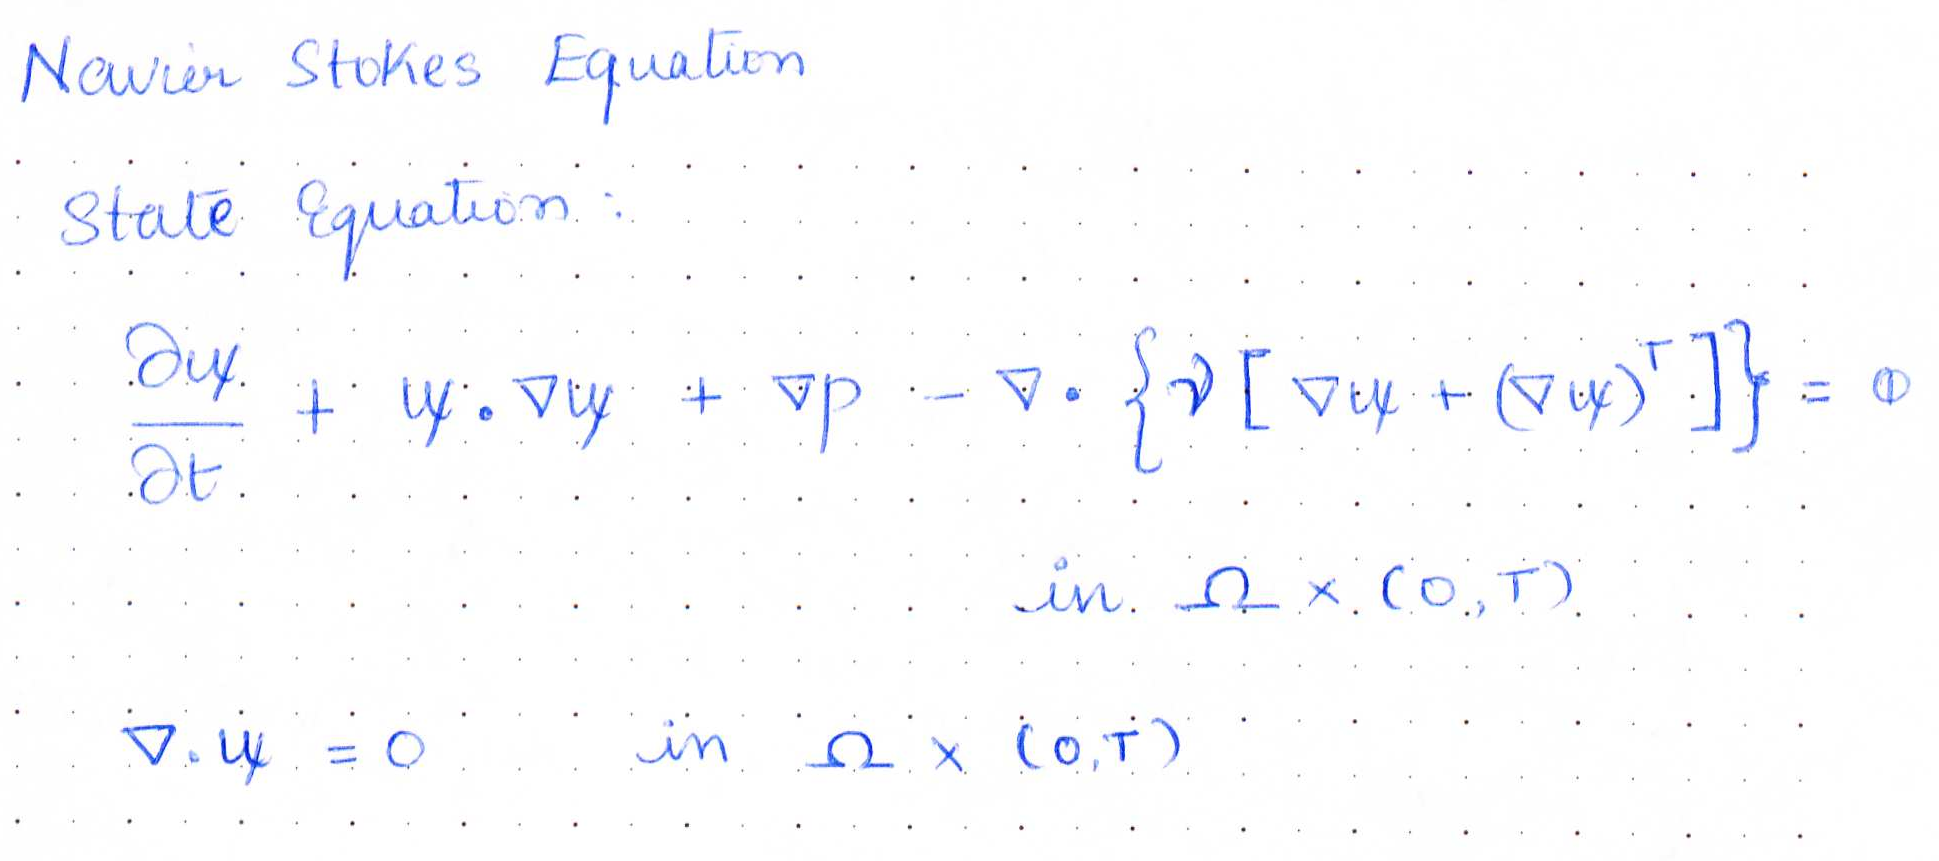 Navier Stokes Equation
State Equation:
∂𝕦/∂t + 𝕦 · ∇𝕦 + ∇p - ∇ · {ν[∇𝕦 + (∇𝕦)ᵀ]} = 𝟘
in Ω × (0,T)
∇·𝕦 = 0 in Ω × (0,T)